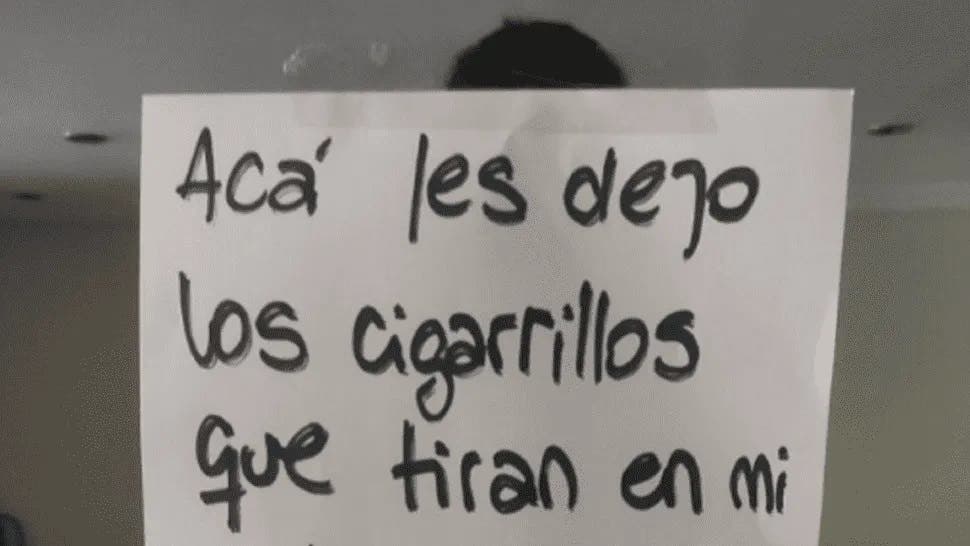 Acá les dejo
los cigarrillos
que tiran en mi